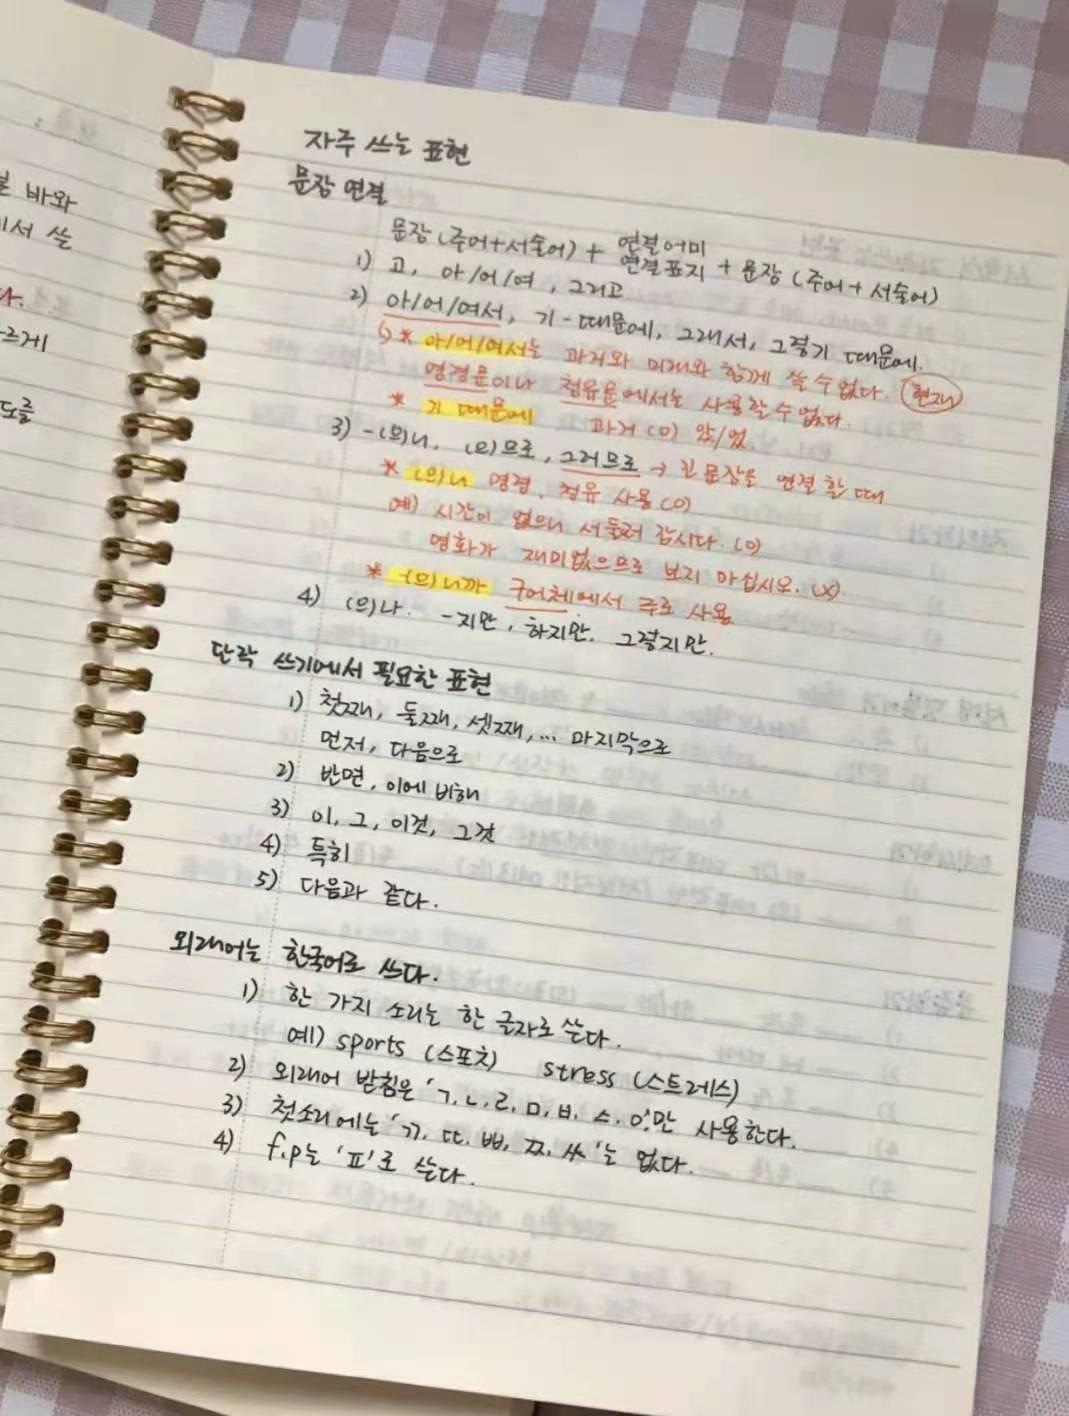 바와
에서 쓸
다.
르게
자주 쓰는 표현
문장 연결
문장 (주어+서술어) + 연결어미
연결표지 + 문장 (주어+서술어)
1) 고, 아/어/여, 그리고
2) 아/어/여서, 기-때문에, 그래서, 그렇기 때문에.
* 아/어/여서는 과거와 미래와 함께 쓸 수 없다. 현재
명령문이나 청유문에서는 사용할 수 없다.
* 기 때문에 과거 (O) 았/었
3) -(으)니, (으)므로, 그러므로 → 긴 문장을 연결할 때
* (으)니 명령, 청유 사용 (O)
예) 시간이 없으니 서둘러 갑시다. (O)
영화가 재미없으므로 보지 마십시오. (X)
* -(으)니까 구어체에서 주로 사용
4) (으)나. -지만, 하지만. 그렇지만.
단락 쓰기에서 필요한 표현
1) 첫째, 둘째, 셋째, ... 마지막으로
먼저, 다음으로
2) 반면, 이에 비해
3) 이, 그, 이것, 그것
4) 특히
5) 다음과 같다.
외래어는 한국어로 쓰다.
1) 한 가지 소리는 한 글자로 쓴다.
예) sports (스포츠) stress (스트레스)
2) 외래어 받침은 'ㄱ,ㄴ,ㄹ,ㅁ,ㅂ,ㅅ,ㅇ'만 사용한다.
3) 첫소리에는 'ㄲ, ㄸ, ㅃ, ㅉ, ㅆ'는 없다.
4) f,p는 'ㅍ'로 쓴다.